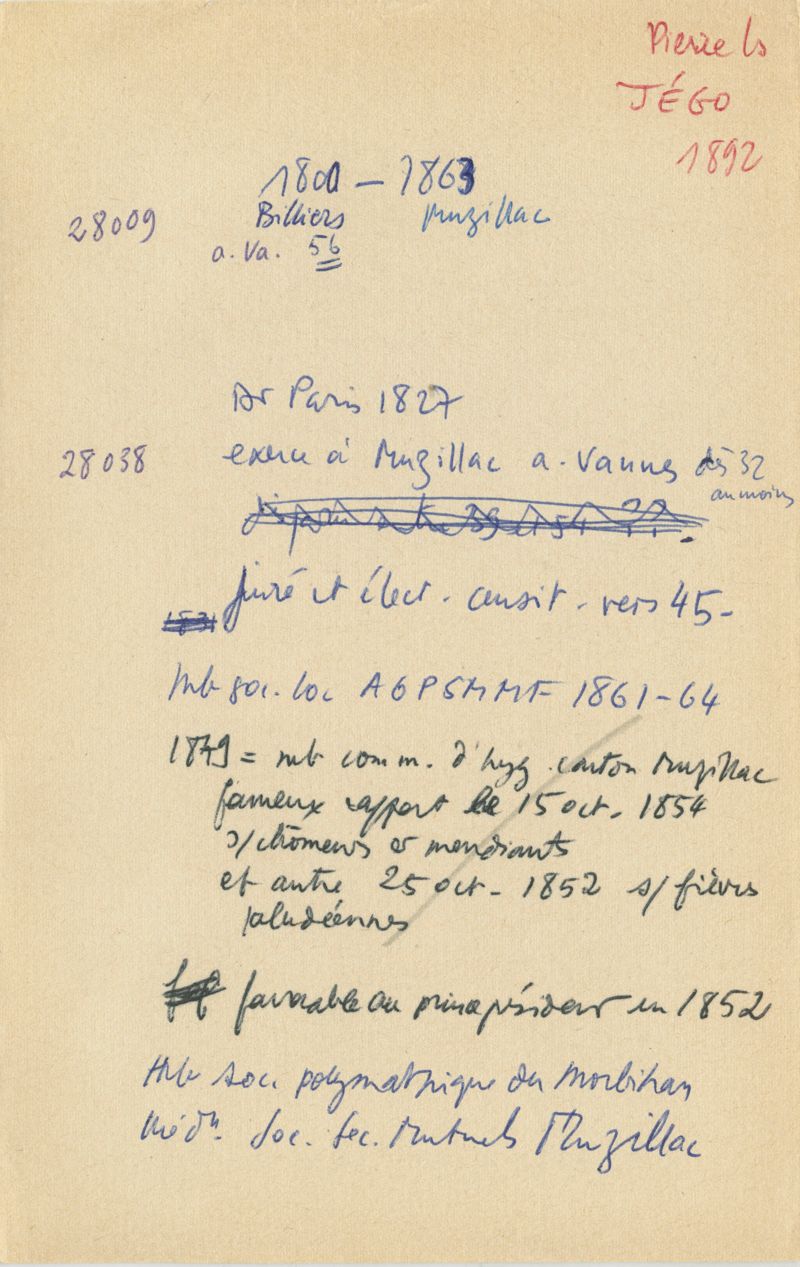 Pierre Ls
JÉGO
1892
1801 – 1863
28009 Billiers Muzillac
a. Va. 56
Dr Paris 1827
28038 exerce à Muzillac a. Vannes dès 32
au moins
juré et élect. censit. vers 45 –
Mb soc. loc AGPSMMF 1861–64
1849 = mb comm. d'hyg. canton Muzillac
fameux rapport le 15 oct. 1854
s/ chômeurs et mendiants
et autre 25 oct. 1852 s/ fièvres
paludéennes
favorable au prince président en 1852
Mb soc. polymathique du Morbihan
Méd. Soc. Sec. Mutuels Muzillac